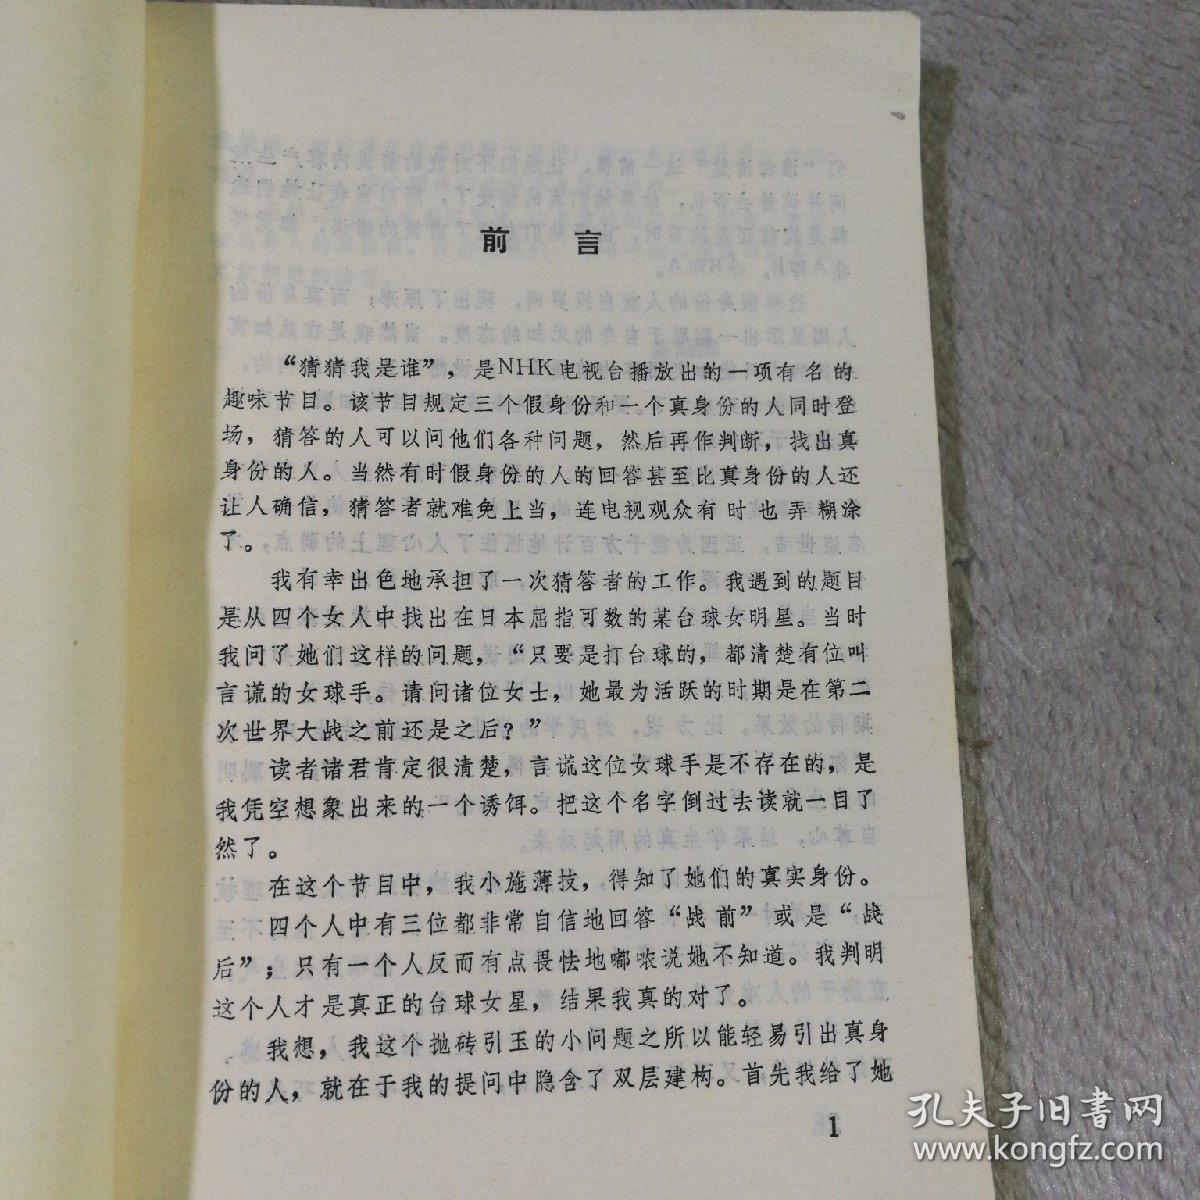 前 言
“猜猜我是谁”，是NHK电视台播放出的一项有名的
趣味节目。该节目规定三个假身份和一个真身份的人同时登
场，猜答的人可以问他们各种问题，然后再作判断，找出真
身份的人。当然有时假身份的人的回答甚至比真身份的人还
让人确信，猜答者就难免上当，连电视观众有时也弄糊涂
了。
我有幸出色地承担了一次猜答者的工作。我遇到的题目
是从四个女人中找出在日本屈指可数的某台球女明星。当时
我问了她们这样的问题，“只要是打台球的，都清楚有位叫
言谎的女球手。请问诸位女士，她最为活跃的时期是在第二
次世界大战之前还是之后？”
读者诸君肯定很清楚，言谎这位女球手是不存在的，是
我凭空想象出来的一个诱饵。把这个名字倒过去读就一目了
然了。
在这个节目中，我小施薄技，得知了她们的真实身份。
四个人中有三位都非常自信地回答“战前”或是“战
后”；只有一个人反而有点畏怯地嘟哝说她不知道。我判明
这个人才是真正的台球女星，结果我真的对了。
我想，我这个抛砖引玉的小问题之所以能轻易引出真身
份的人，就在于我的提问中隐含了双层建构。首先我给了她
1
孔夫子旧书网
www.kongfz.com